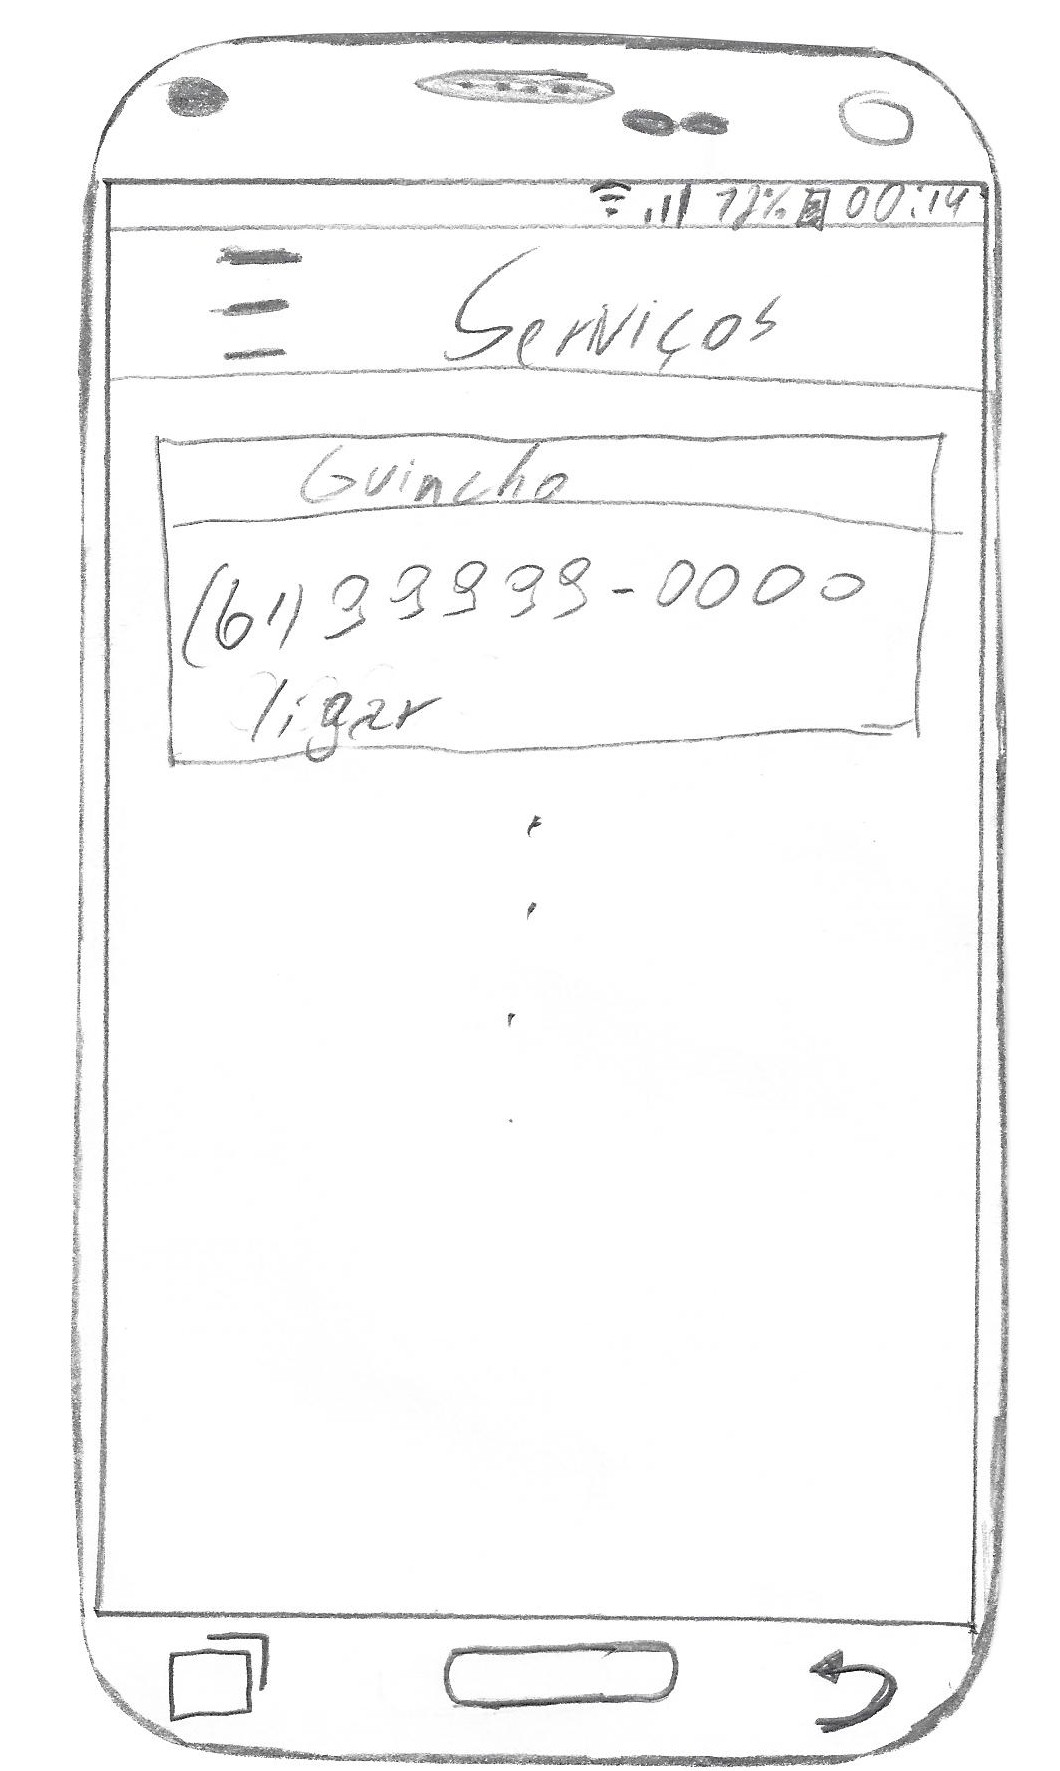 72% 00:14
Serviços
Guincho
(61) 99999-0000
ligar